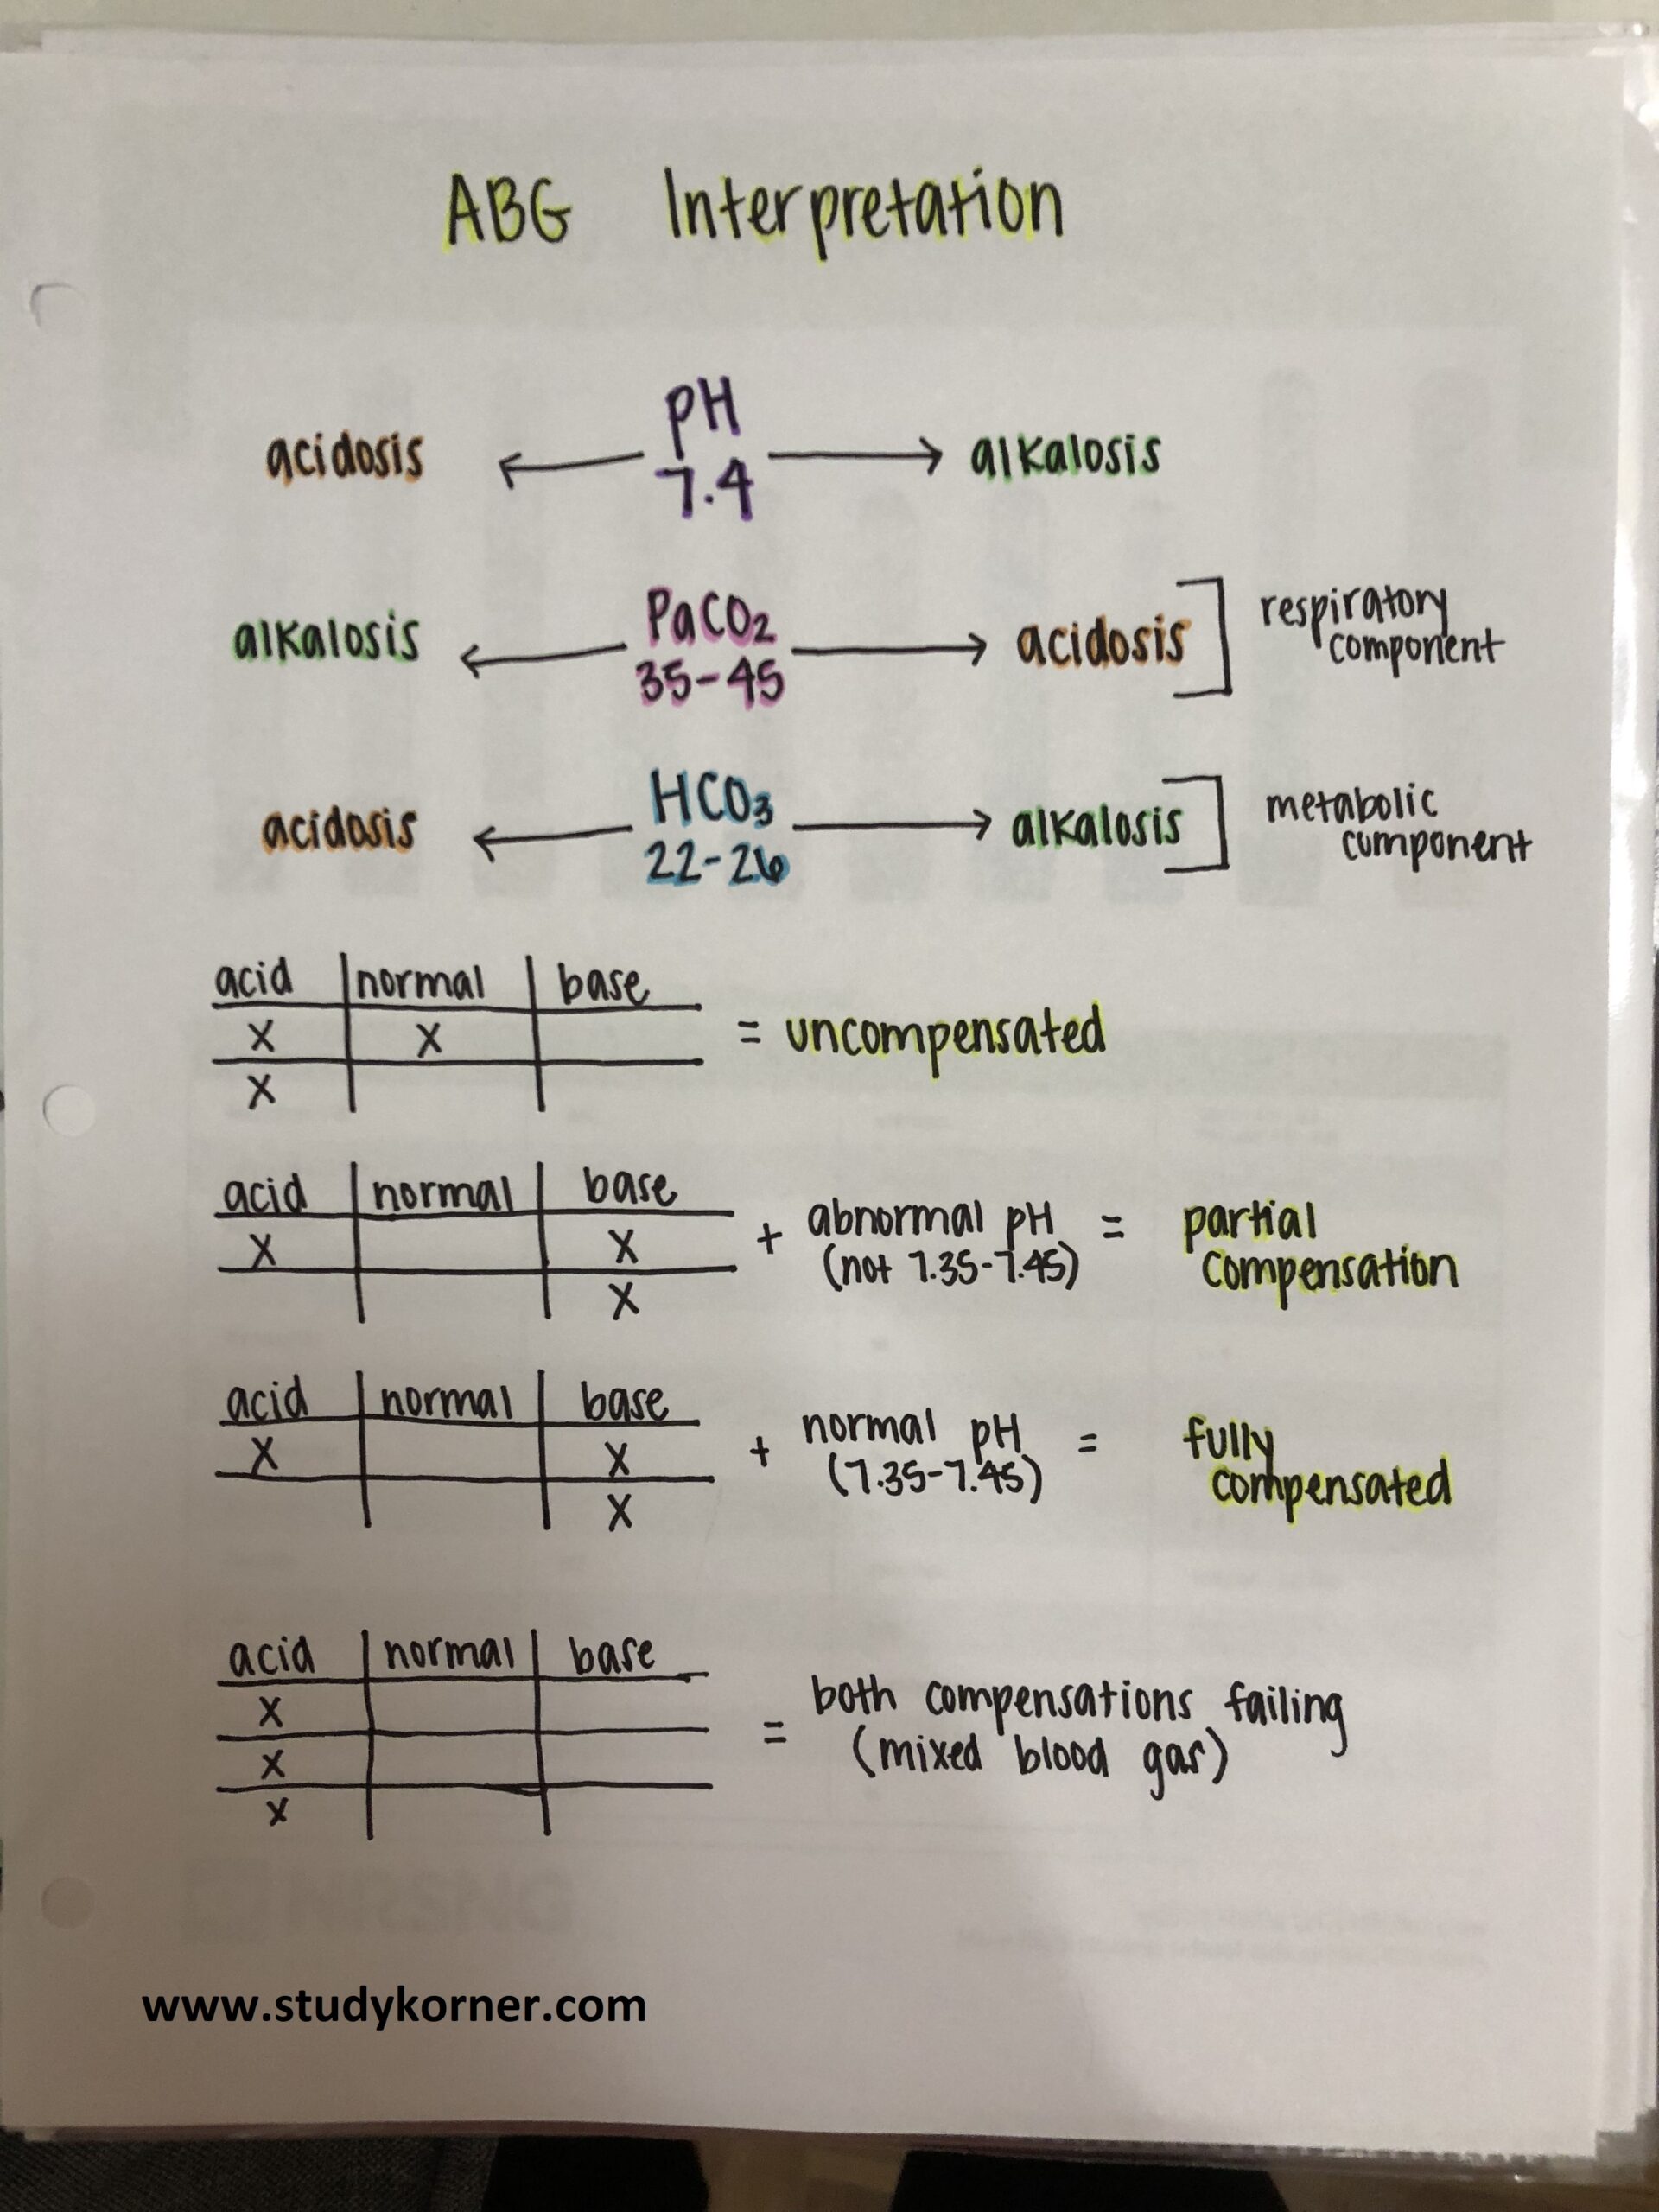 ABG Interpretation
acidosis ← pH → alkalosis
7.4
alkalosis ← PaCO₂ → acidosis ] respiratory
35-45 component
acidosis ← HCO₃ → alkalosis ] metabolic
22-26 component
acid normal base
X X = uncompensated
X
acid normal base
X X + abnormal pH = partial
X (not 7.35-7.45) compensation
acid normal base
X X + normal pH = fully
X (7.35-7.45) compensated
acid normal base
X
X = both compensations failing
X (mixed blood gas)
www.studykorner.com